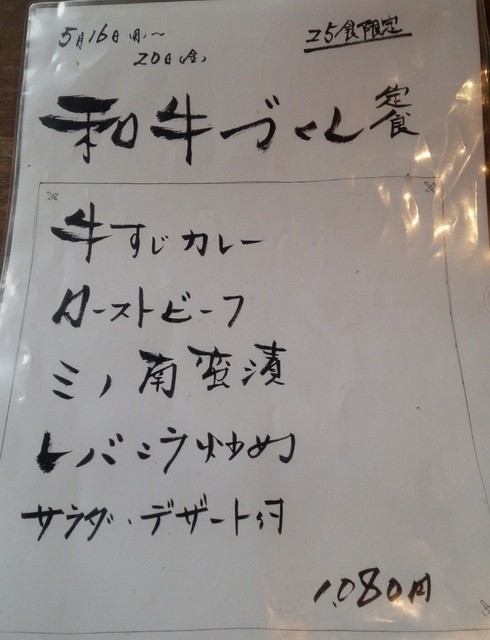 5月16日(月)〜
20日(金)
25食限定
和牛づくし定食
牛すじカレー
ローストビーフ
ミノ南蛮漬
レバニラ炒め
サラダ・デザート付
1,080円